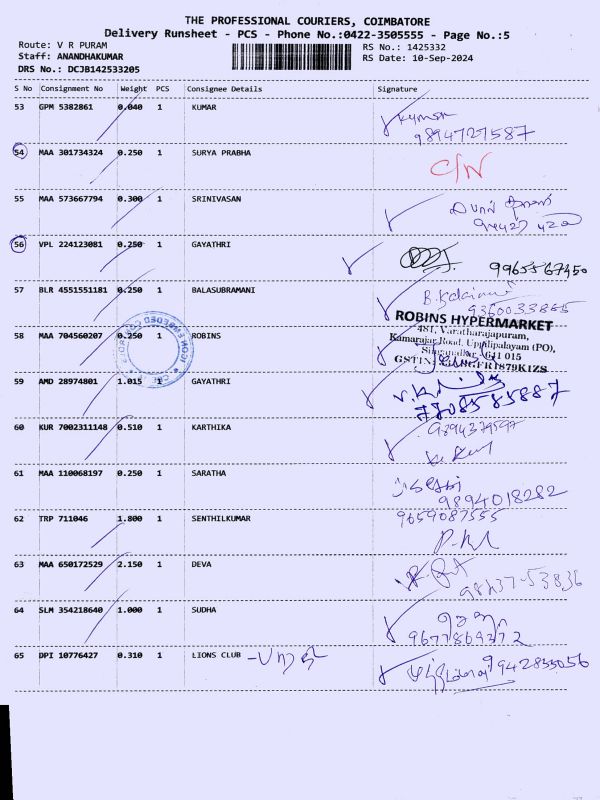 THE PROFESSIONAL COURIERS, COIMBATORE
Delivery Runsheet - PCS - Phone No.:0422-3505555 - Page No.:5
Route: V R PURAM
RS No.: 1425332
Staff: ANANDHAKUMAR
RS Date: 10-Sep-2024
DRS No.: DCJB142533205
S No Consignment No Weight PCS Consignee Details Signature
53 GPM 5382861 0.040 1 KUMAR
Kumar
9894727587
54 MAA 301734324 0.250 1 SURYA PRABHA
C/N
55 MAA 573667794 0.300 1 SRINIVASAN
56 VPL 224123081 0.250 1 GAYATHRI
9965567450
57 BLR 4551551181 0.250 1 BALASUBRAMANI
9360033865
58 MAA 704560207 0.250 1 ROBINS
ROBINS HYPERMARKET
481, Varatharajapuram,
Kamarajar Road, Uppilipalayam (PO),
641 015
59 AMD 28974801 1.015 1 GAYATHRI
7708585887
60 KUR 7002311148 0.510 1 KARTHIKA
61 MAA 110068197 0.250 1 SARATHA
9894018282
62 TRP 711046 1.800 1 SENTHILKUMAR
9659087555
63 MAA 650172529 2.150 1 DEVA
98437-53836
64 SLM 354218640 1.000 1 SUDHA
9677869372
65 DPI 10776427 0.310 1 LIONS CLUB
9942833056